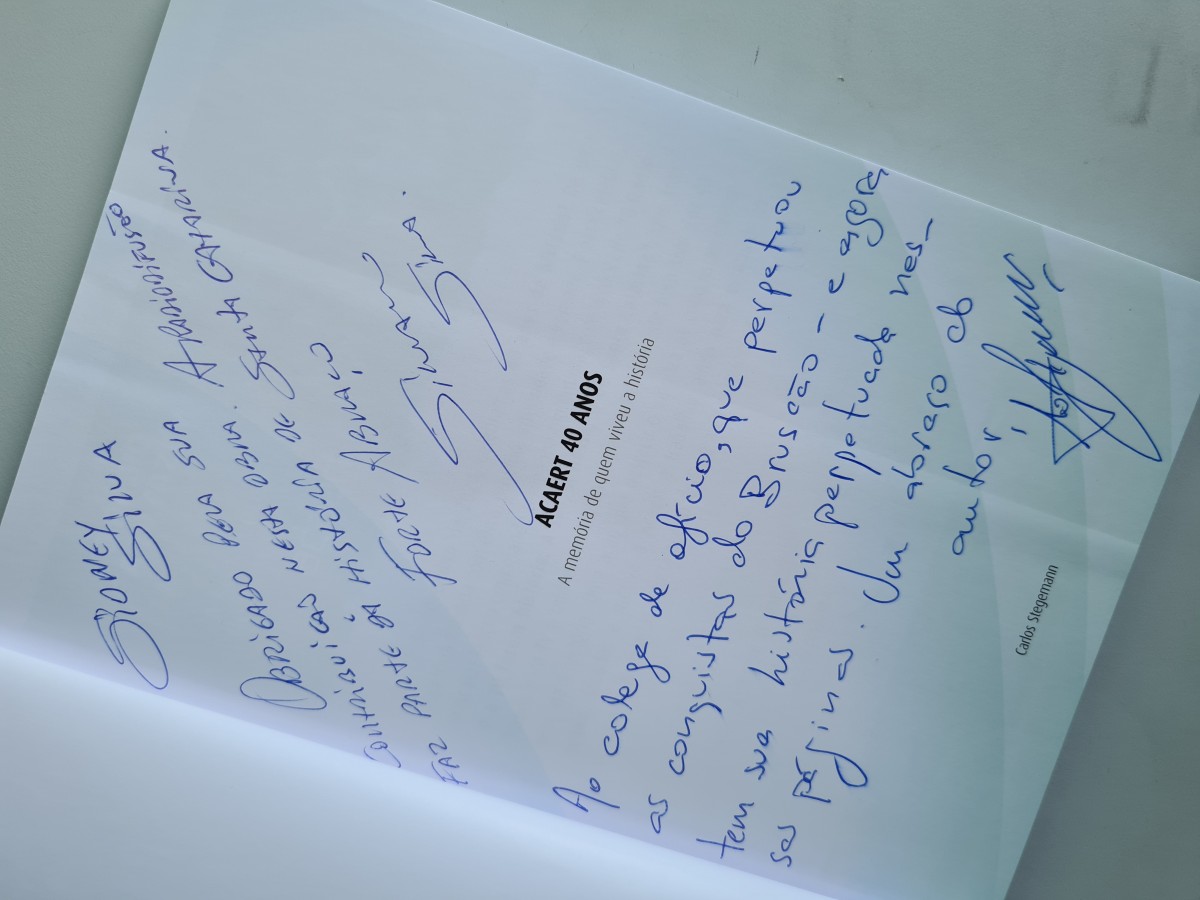 SIDNEY
SILVA
OBRIGADO PELA SUA
CONTRIBUIÇÃO NESTA OBRA. A RADIODIFUSÃO
FAZ PARTE DA HISTÓRIA DE SANTA CATARINA.
FORTE ABRAÇO
SILVANO
SILVA.
ACAERT 40 ANOS
A memória de quem viveu a história
Ao colega de ofício, que perpetuou
as conquistas do Bruscão – e agora
tem sua história perpetuada nes-
sas páginas. Um abraço do
autor,
Carlos Stegemann